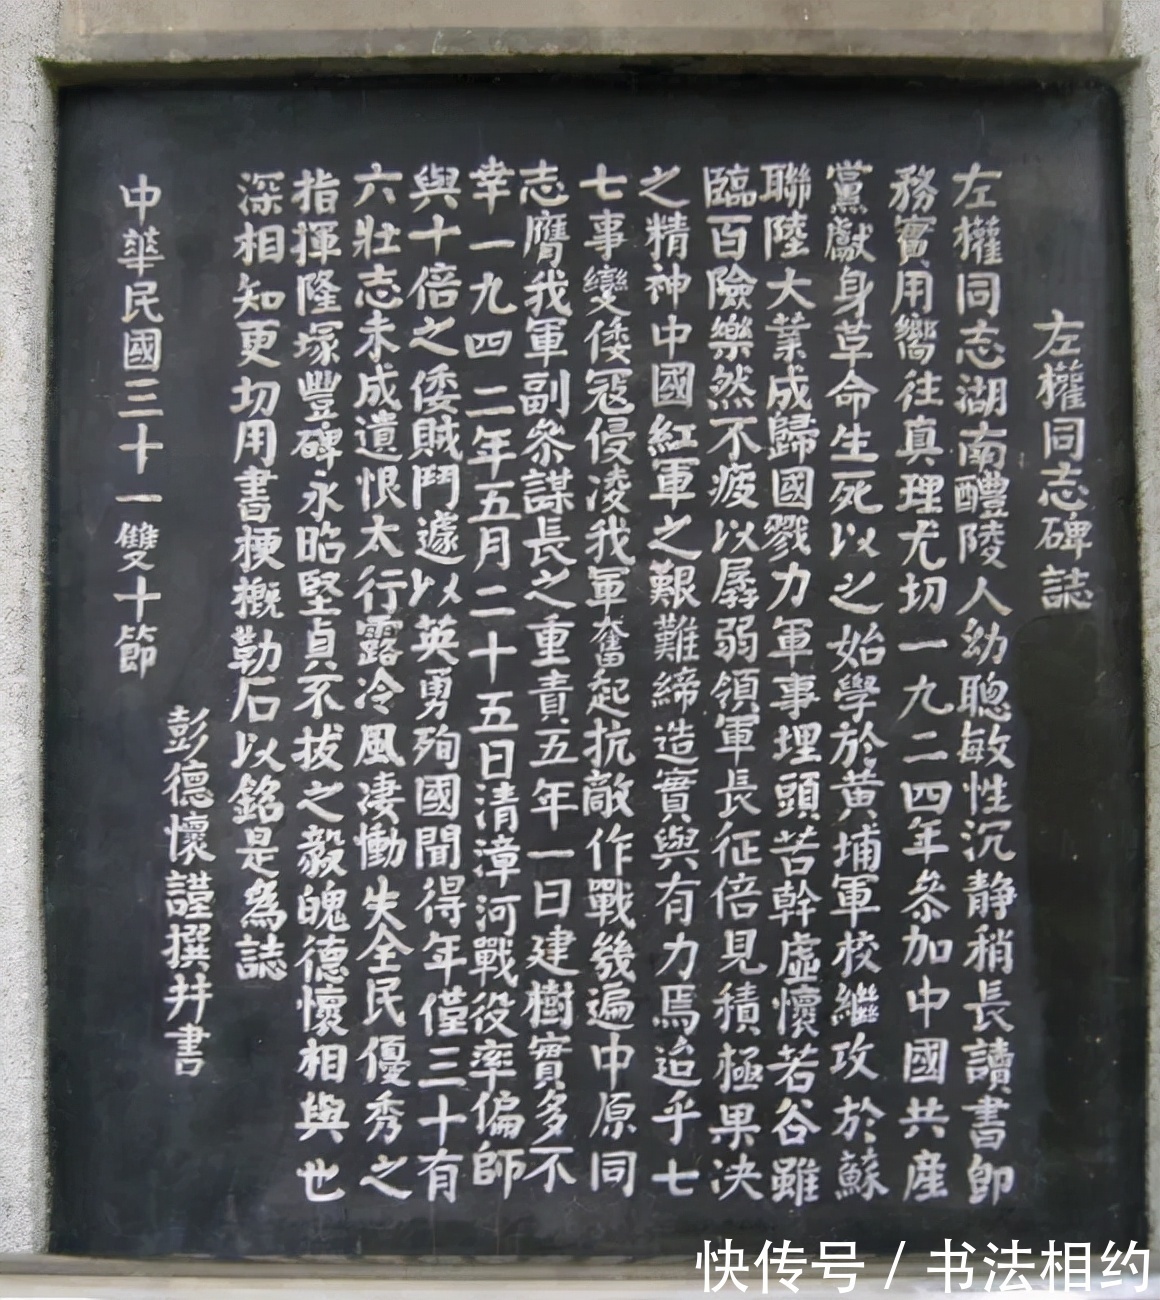 左權同志碑誌
左權同志湖南醴陵人幼聰敏性沉静稍長讀書即
務實用嚮往真理尤切一九二四年参加中國共産
黨獻身革命生死以之始學於黄埔軍校繼攻於蘇
聯陸大業成歸國戮力軍事埋頭苦幹虛懷若谷雖
臨百險樂然不疲以孱弱領軍長征倍見積極果决
之精神中國紅軍之艱難締造實與有力焉迨乎七
七事變倭寇侵凌我軍奮起抗敵作戰幾遍中原同
志膺我軍副参謀長之重責五年一日建樹實多不
幸一九四二年五月二十五日清漳河戰役率偏師
與十倍之倭賊鬥遽以英勇殉國聞得年僅三十有
六壯志未成遺恨太行露冷風凄慟失全民優秀之
指揮隆塚豐碑永昭堅貞不拔之毅魄德懷相與也
深相知更切用書梗概勒石以銘是為誌
彭德懷謹撰并書
中華民國三十一雙十節
快传号 / 书法相约